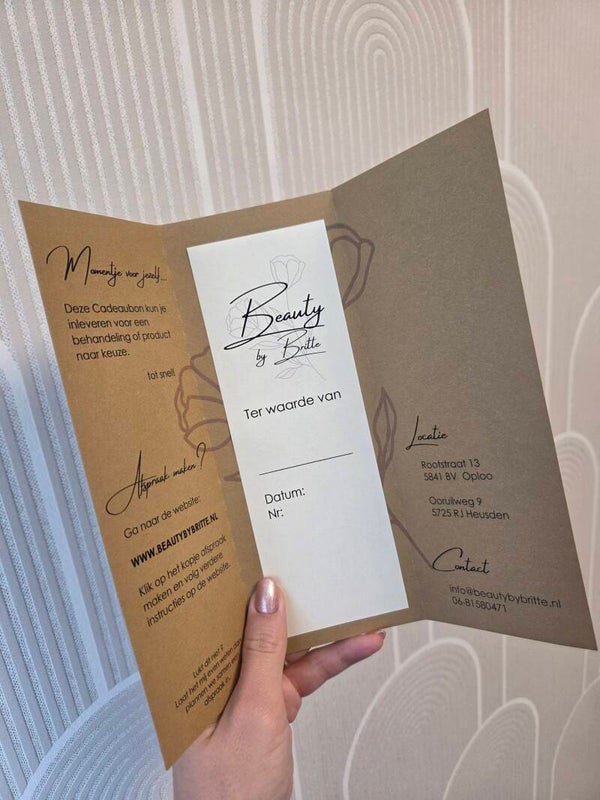 Momentje voor jezelf...
Deze Cadeaubon kun je
inleveren voor een
behandeling of product
naar keuze.
tot snel!
Afspraak maken?
Ga naar de website:
WWW.BEAUTYBYBRITTE.NL
Klik op het kopje afspraak
maken en volg verdere
instructies op de website.
Lukt dit niet?
Laat het mij even weten dan
plannen we samen een
afspraak in.
Beauty
by Britte
Ter waarde van
Datum:
Nr:
Locatie
Rootstraat 13
5841 BV Oploo
Ooruilweg 9
5725 RJ Heusden
Contact
info@beautybybritte.nl
06-81580471